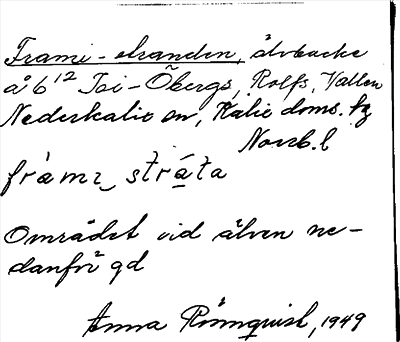 Frami-stranden, älvbacke
å 6¹² Toi-Öbergs, Rolfs, Vallen
Nederkalix sn, Kalix doms. tg
Norrb. l
Området vid älven ne-
danför gd
Anna Rönnquist, 1949